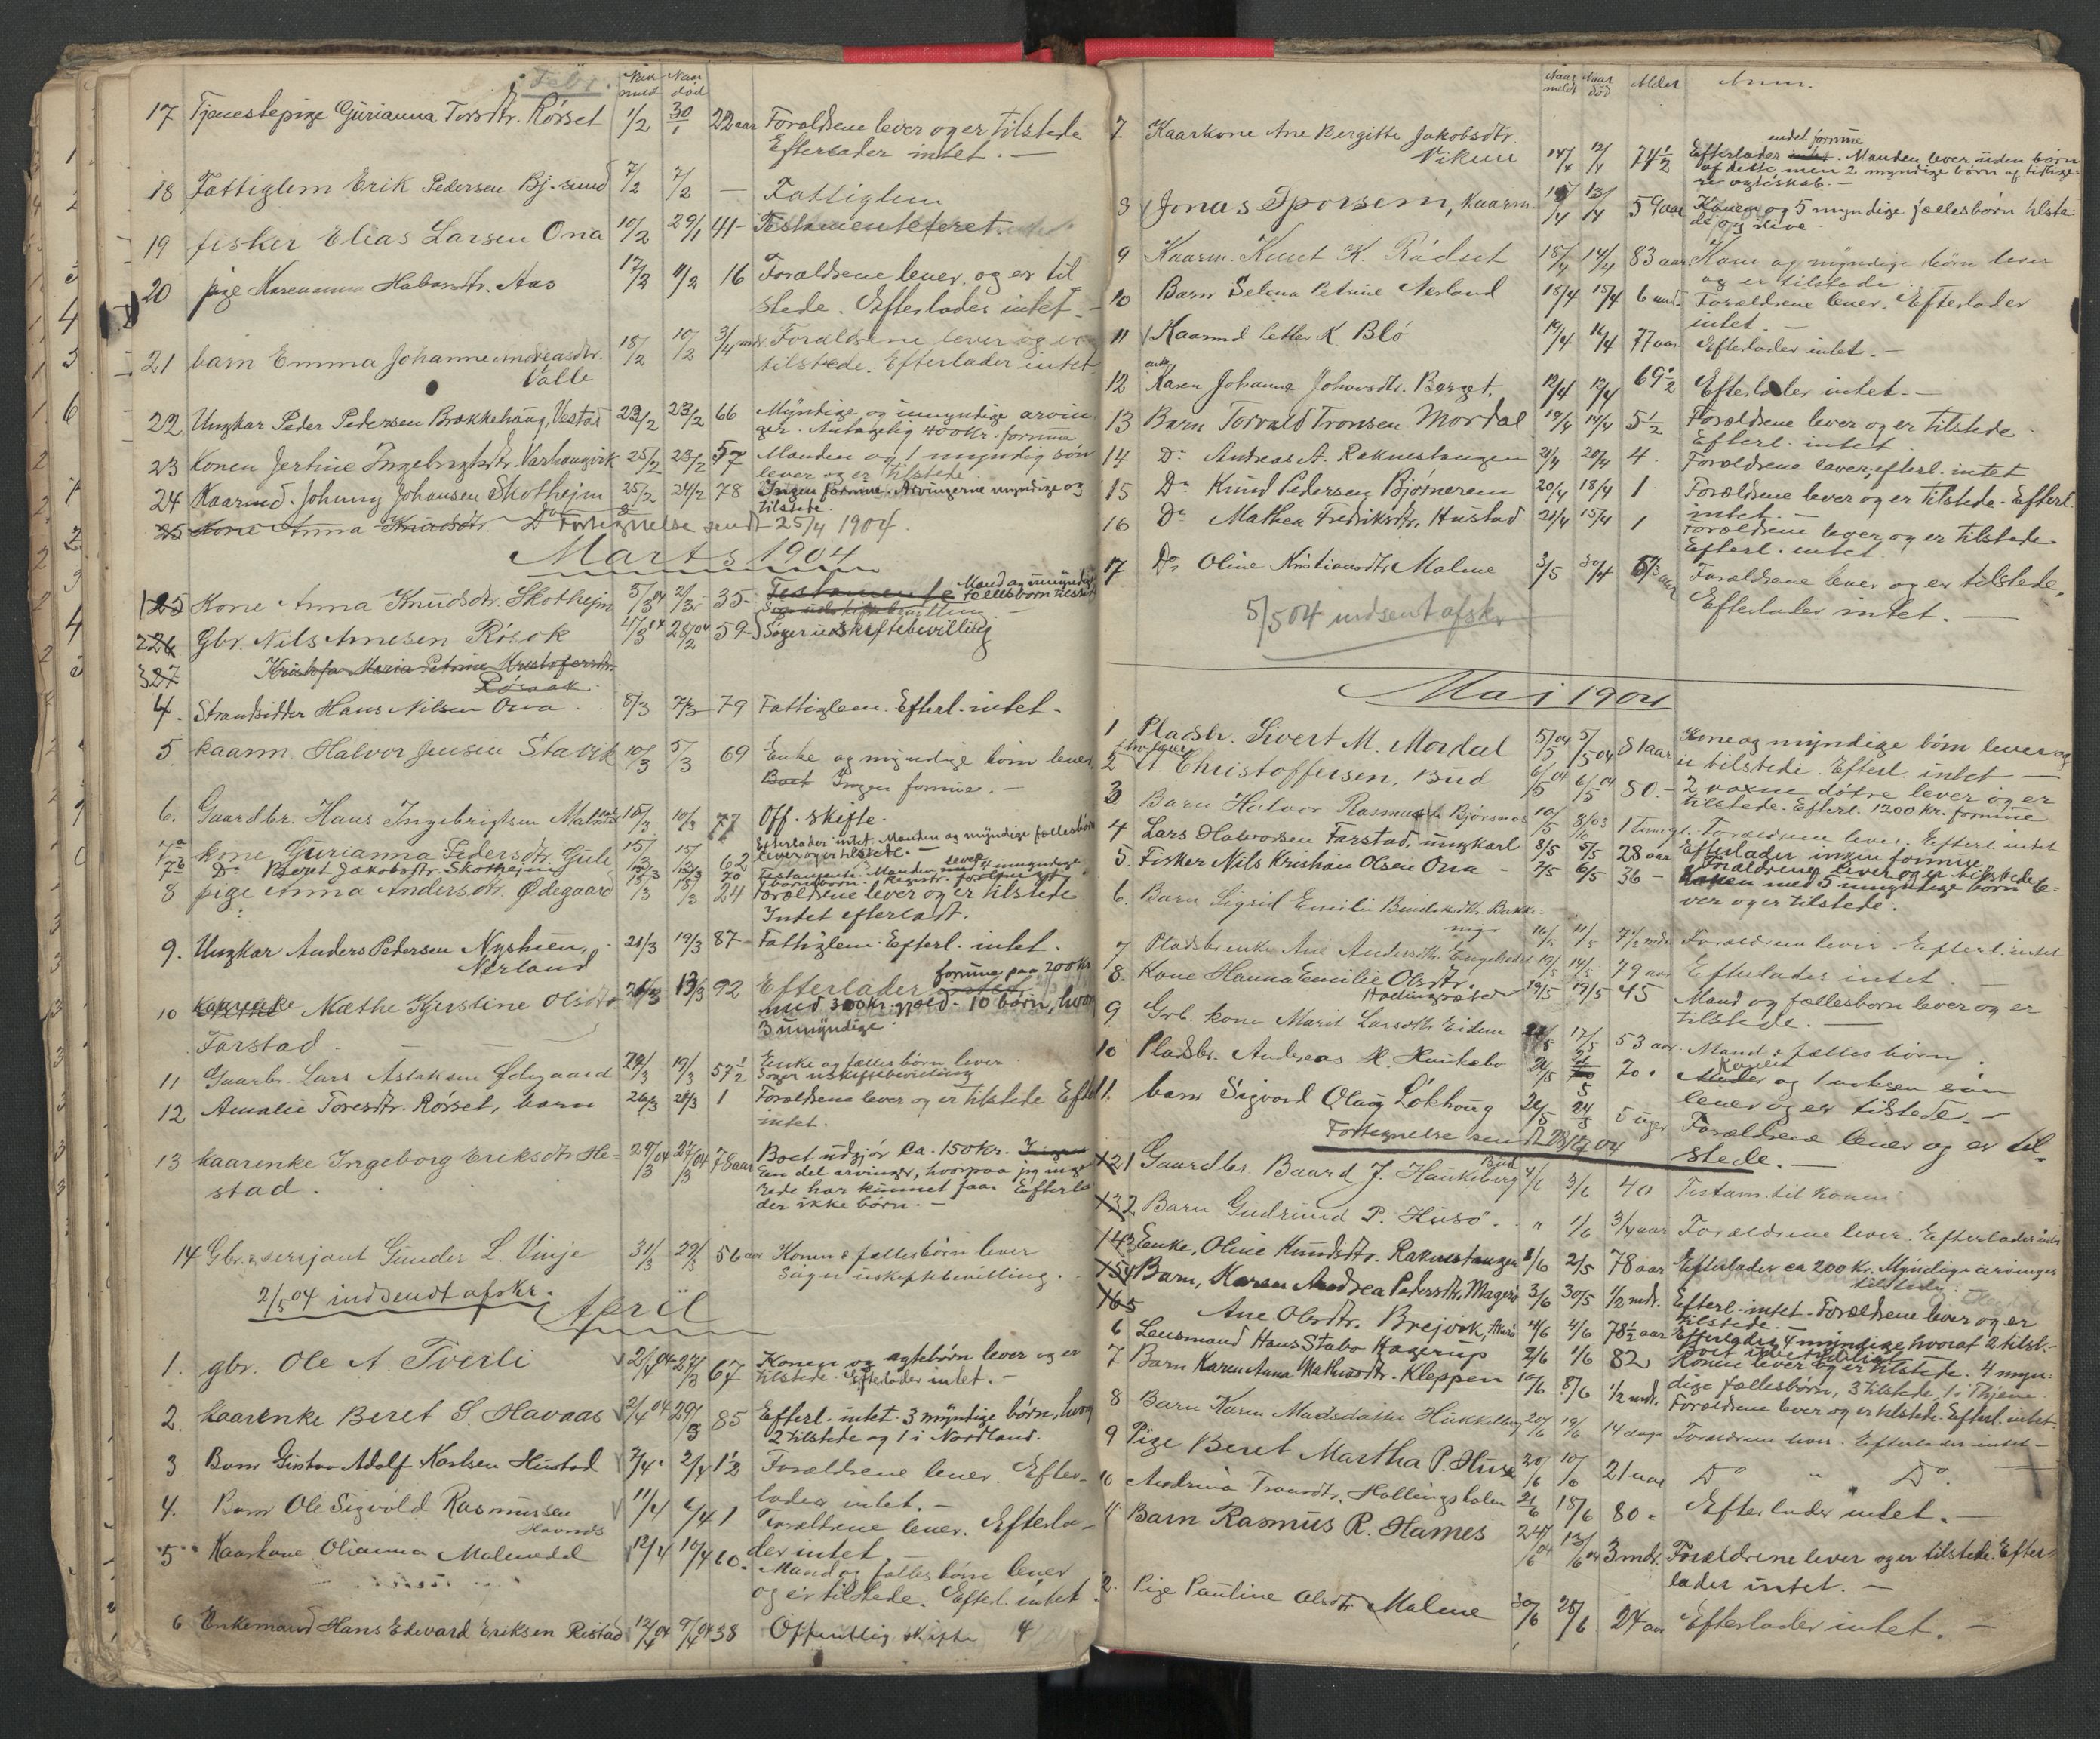 Febr.
Naar meld Naar død
17 Tjenestepige Gurianna Torsdtr. Rørset 1/2 30/1 22 aar Forældrene lever og er tilstede
Efterlader intet. —
18 Fattiglem Erik Pedersen Bj.sund 7/2 7/2 — Fattiglem
19 fisker Elias Larsen Ona 10/2 29/1 41 - Testamenteferet
20 pige Aas 17/2 11/2 16 Forældrene lever og er til
stede. Efterlader intet -
21 barn Emma Johanne Andreasdtr. 18/2 10/2 3/4 mdr. Forældrene lever og er
Valle tilstede. Efterlader intet
22 Ungkar Peder Pedersen Brækkehaug, Vestad 23/2 23/2 66 Myndige og umyndige arvin
ger. Antagelig 400 kr. formue
23 Konen Jertine Ingebrigtsdtr. Varhaugvik 25/2 23/2 57 Manden og 1 myndig søn
lever og er tilstede
24 Kaarmd. Johnny Johansen Skothejm 25/2 24/2 78 Ingen formue. Arvingerne myndige og
tilstede.
25 Kone Anna Knudsdtr. Fortegnelse sendt 25/4 1904.
Marts 1904
1 25 Kone Anna Knudsdtr. Skothejm 5/3 04 2/3 35 - Testamente Mand og umyndige
fællesbørn tilstede
Søger uskiftebevilling
2 26 Gbr. Nils Arnesen Rösok 17/3 04 28/2 04 59 - Søger uskiftebevilling
3 27 Kristofa Maria Petrine Kristofersdtr.
Rösaak
4. Strandsidder Hans Nilsen Ona 8/3 7/3 - 79 Fattiglem. Efterl. intet -
5 kaarm. Halvor Jensen Stavik 10/3 5/3 69 Enke og myndige børn lever.
Boet Ingen formue. -
6. Gaardbr. Hans Ingebrigtsen Malme 15/3 10/3 77 Off. skifte.
Efterlader intet. Manden og myndige fællesbørn
7a kone Gurianna Pedersdtr. Gule 15/3 15/3 62 lever og er tilstede. —
7b Do Beret Jakobsdtr. Skothejm 70 Testamente. Manden lever 4 umyndige
8 pige Anna Andersdtr. Ødegaard 18/3 18/3 24 Forældrene lever og er tilstede
Intet efterladt.
9. Ungkar Anders Pedersen Nyheim, 21/3 19/3 87 - Fattiglem. Efterl. intet.
Nerland
formue paa 200 kr
10 kaarenke Mæthe Kjerstine Olsdtr 26/3 13/3 92 Efterlader
med 300 kr. gjæld - 10 børn, hvor
Farstad. 3 umyndige.
11 Gaarbr. Lars Aslaksen Ødegaard 29/3 19/3 57 1/2 Enke og fælles børn lever
Søger uskiftebevilling
12 Amalie Toresdtr. Rørset, barn 26/3 21/3 1 Forældrene lever og er tilstede Efterl
intet.
13 kaarenke Ingeborg Eriksdtr. He- 29/3 04 27/3 04 78 aar Boet udgjør Ca. 150 kr. Ingen
stad. En del arvinger, hvorpaa jeg inge
rede har kunnet faar Efterla
der ikke børn. -
14 Gbr. & sersjant Gunder L. Vinje 31/3 29/3 56 aar Konen & fællesbørn lever
Søger uskiftebevilling.
2/5 04 indsendt afskr.
April
1. gbr. Ole A. Tverli 2/4 04 27/3 67 Konen og ægtebørn lever og er
tilstede. Efterlader intet. -
2. kaarenke Beret S. Havaas 2/4 04 29/3 85 Efterl. intet. 3 myndige børn, hvor
2 tilstede og 1 i Nordland.
3 Barn Gustav Adolf Karlsen Hustad 7/4. 2/4 1 1/2 Forældrene lever. Efter-
lader intet. -
4. Barn Ole Sigvold Rasmussen 11/4 6/4 1 Forældrene lever. Efterla-
der intet
5 Kaarkone Olianna Malmedal 12/4 10/4 60. Mand og fælles børn lever
og er tilstede. Efterl. intet.
6 Enkemand Hans Edevard Eriksen Ristad 12/4 04 9/4 04 38 Offentlig skifte 4
Naar meldt Naar død Alder Anm.
7 Kaarkone Ane Bergitte Jakobsdtr. endel formue
Vikene 14/4 12/4 74 1/2 Efterlader intet. Manden lever uden børn
af dette, men 2 myndige børn af tidlige-
re ægteskab. -
8 Jonas Sporsem, kaarm. 15/4 13/4 59 aar Konen og 5 myndige fællesbørn tilste-
de og i live.
9 Kaarm. Knut K. Rødset 18/4 14/4 83 aar Kone og myndige børn lever
og er tilstede
10 Barn Selena Petrine Nerland 18/4 15/4 6 mdr. Forældrene lever. Efterlader
intet. -
11 Kaarmd Petter K Blø 19/4 16/4 77 aar Efterlader intet. -
enke
12 Karen Johanne Johansdtr. Berget. 19/4 12/4 69 1/2 Efterlader intet. -
13 Barn Torvald Tronsen Mordal 19/4 14/4 5 1/2 Forældrene lever og er tilstede
Efterl. intet
14 Do Andreas A. Raknestangen 21/4 20/4 4. Forældrene lever, efterl. intet
15 Do Knud Pedersen Bjørnerem 20/4 18/4 1 Forældrene lever og er tilstede. Efterl.
intet. -
16 Do Mathea Fredriksdtr. Hustad 21/4 15/4 1 Forældrene lever og er tilstede.
Efterl. intet
17 Do Oline Kristiansdtr. Malme 3/5 30/4 aar Forældrene lever og er tilstede,
Efterlader intet. -
5/5 04 indsent afskr
Mai 1904
1 Pladsbr. Sivert M. Mordal 5/5 04 5/5 04 81 aar Kone og myndige børn lever og
er tilstede. Efterl. intet —
2 A. Christoffersen, Bud 6/5 04 6/5 04 80. - 2 voxne døtre lever og er
tilstede. Efterl. 1200 kr. formue
3 Barn Halvor Rasmussen Bjørsnos 10/5 1 time gl. Forældrene lever. Efterl. intet
4 Lars Halvorsen Farstad, ungkarl 8/5 5/5 28 aar Efterlader ingen formue
Forældrene lever og er tilstede
5. Fisker Nils Kristian Olsen Ona - 7/5 6/5 36 - Konen med 5 umyndige børn le-
ver og er tilstede.
6. Barn Sigrid Emilie
16/5 11/5 7 1/2 mdr. Forældrene lever. Efterl. intet
7 Pladsbr. enke Ane Andersdtr. Engelsæt 19/5 14/5 79 aar Efterlader intet. -
8. Kone Hanna Emilie Olsdtr. 19/5 19/5 45 Mand og fællesborn lever og er
tilstede. —
9 Grb. kone Marit Larsdtr Eidem 24/5 17/5 53 aar. Mand & fælles børn.
10 Pladsbr. Andreas M. Haukabø 24/5 70. Konen
og 1 voksen søn
lever og er tilstede. -
11. barn Sigvard Olauf Løkhoug 24/5 24/5 5 uger Forældrene lever og er til-
Fortegnelse sendt 04 stede. -
12 1 Gaardbr. Baard J. Haukeberg Bud 4/6 3/6 40 Testam. til konen
13 2 Barn Gudrund P. Husø. " 1/6 3/4 aar Forældrene lever. Efterlader intet
14 3 Enke, Oline Knudsdtr. Raknestangen 1/6 2/5 78 aar Efterlader ca 200 kr. Myndige arvinger
tilstede.
15 4 Barn, Karen Andrea Pedersdtr. Magerø 3/6 30/5 1/2 mdr. Efterl. intet - Forældrene lever og er
tilstede. -
16 5 Ane Olsdtr. Brejvik, 4/6 4/6 78 1/2 aar Efterlader 4 myndige hvoraf 2 tilst. -
Boet ubetydeligt
6 Lensmand Hans Stabo Hagerup 2/6 1/6 82 Konen lever og er tilstede. 4 myn-
dige fællesbørn, 3 tilstede, 1 i Thjeme.
7 Barn Karen Anna Mathisdtr. Kleppen 10/6 8/6 1/2 mdr. Forældrene lever og er tilstede. Efterl. intet.
8 Barn Karen 20/6 19/6 14 dage Forældrene lever. Efterlader intet -
9 Pige Beret Martha P. Huse 20/6 10/6 21 aar Do " Do.
10 Andrina Hollingsholm 21/6 18/6 80. Efterlader intet. -
11 Barn Rasmus R. Hames 24/6 04 13/6 04 3 mdr. Forældrene lever og er tilstede. Efter-
lader intet. -
12. Pige Pauline Olsdtr. Malme 30/6 28/6 24 aar Efterlader intet. -